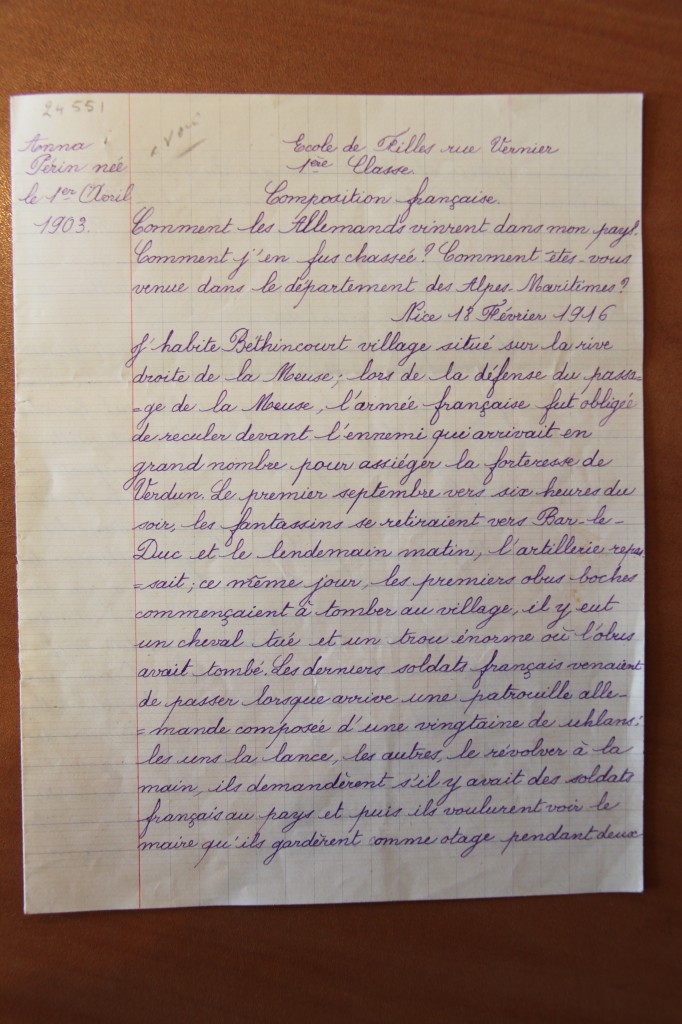 24 551
Anna
Périn née
le 1er Avril
1903.
Ecole de Filles rue Vernier
1ère Classe.
Composition française.
Comment les Allemands vinrent dans mon pays.
Comment j'en fus chassée? Comment êtes-vous
venue dans le département des Alpes-Maritimes?
Nice 18 Février 1916
J'habite Béthincourt village situé sur la rive
droite de la Meuse; lors de la défense du passa=
=ge de la Meuse, l'armée française fut obligée
de reculer devant l'ennemi qui arrivait en
grand nombre pour assiéger la forteresse de
Verdun. Le premier septembre vers six heures du
soir, les fantassins se retiraient vers Bar-le-
Duc et le lendemain matin, l'artillerie repas
=sait; ce même jour, les premiers obus boches
commençaient à tomber au village, il y eut
un cheval tué et un trou énorme où l'obus
avait tombé. Les derniers soldats français venaient
de passer lorsque arrive une patrouille alle-
=mande composée d'une vingtaine de uhlans:
les uns la lance, les autres, le révolver à la
main, ils demandèrent s'il y avait des soldats
français au pays et puis ils voulurent voir le
maire qu'ils gardèrent comme otage pendant deux